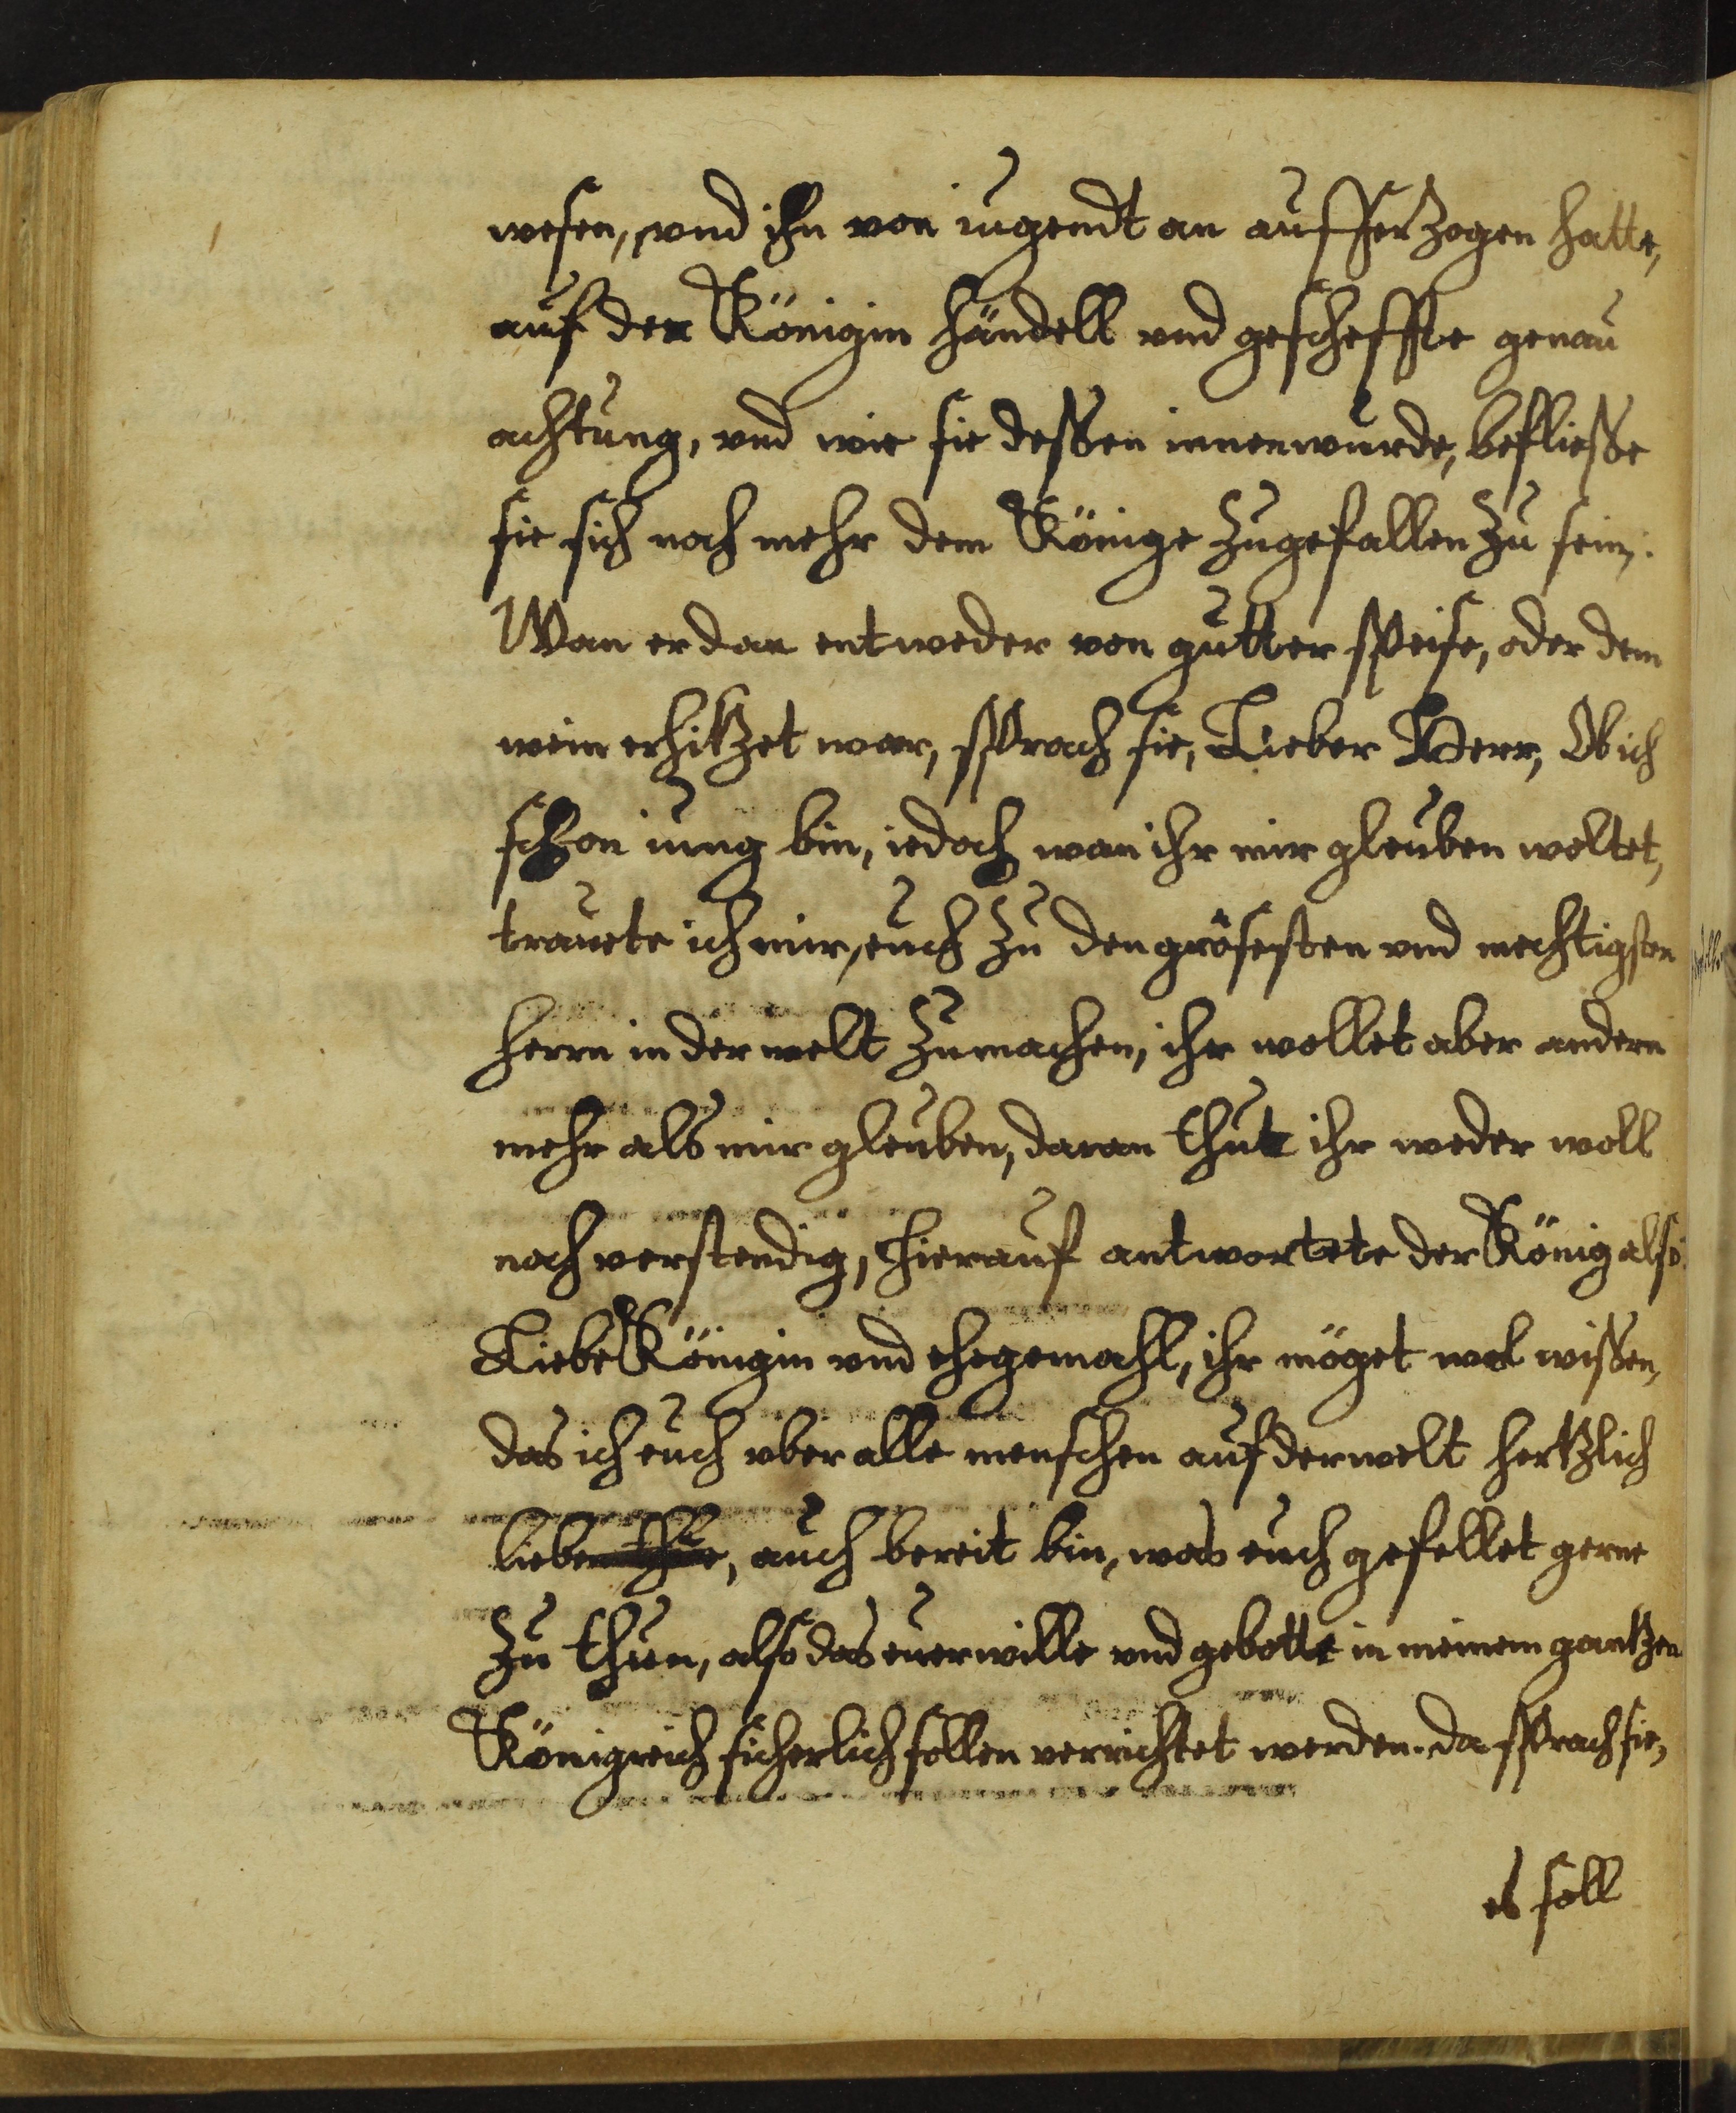 wesen, vnd ihn von iugendt an aufferzogen hatte,
auf der Königin händell vnd gescheffte genau
achtung, vnd wie sie dessen innenwurde, befliesse
sie sich noch mehr dem Könige zugefallen zu sein.
Wan er dan entweder von gutter speise, oder dem
wein erhitzet war, sprach sie, Lieber Herr, Ob ich
schon iung bin, iedoch wan ihr mir gleuben woltet,
trauete ich mir, euch zu den grösesten vnd mechtigsten
herrn in der welt zumachen, ihr wollet aber andern
mehr als mir gleuben, daran thut ihr weder woll
noch verstendig, hierauf antwortete der König also.
Liebe Königin vnd ehegemahl, ihr möget wol wissen,
das ich euch vber alle menschen auf der welt hertzlich
lieben thue, auch bereit bin, was euch gefellet gerne
zu thun, also das euer wille vnd gebotte in meinem gantzen
Königreich sicherlich sollen verrichtet werden. da sprach sie,
es soll